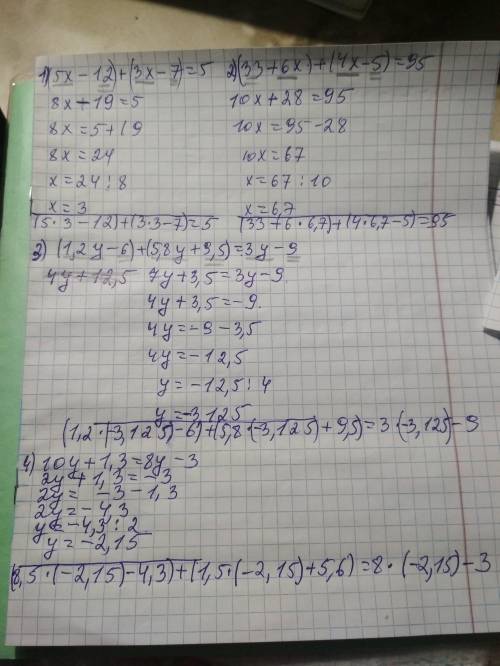 1) (5x-12)+(3x-7)=5
8x-19=5
8x=5+19
8x=24
x=24:8
x=3
(5·3-12)+(3·3-7)=5
2) (33+6x)+(4x-5)=95
10x+28=95
10x=95-28
10x=67
x=67:10
x=6,7
(33+6·6,7)+(4·6,7-5)=95
3) (1,2y-6)+(5,8y+9,5)=3y-9
4y+12,5 7y+3,5=3y-9
4y+3,5=-9
4y=-9-3,5
4y=-12,5
y=-12,5:4
y=-3,125
(1,2·(-3,125)-6)+(5,8·(-3,125)+9,5)=3·(-3,125)-9
4) 10y+1,3=8y-3
2y+1,3=-3
2y= -3-1,3
2y=-4,3
y=-4,3:2
y=-2,15
(8,5·(-2,15)-4,3)+(1,5·(-2,15)+5,6)=8·(-2,15)-3